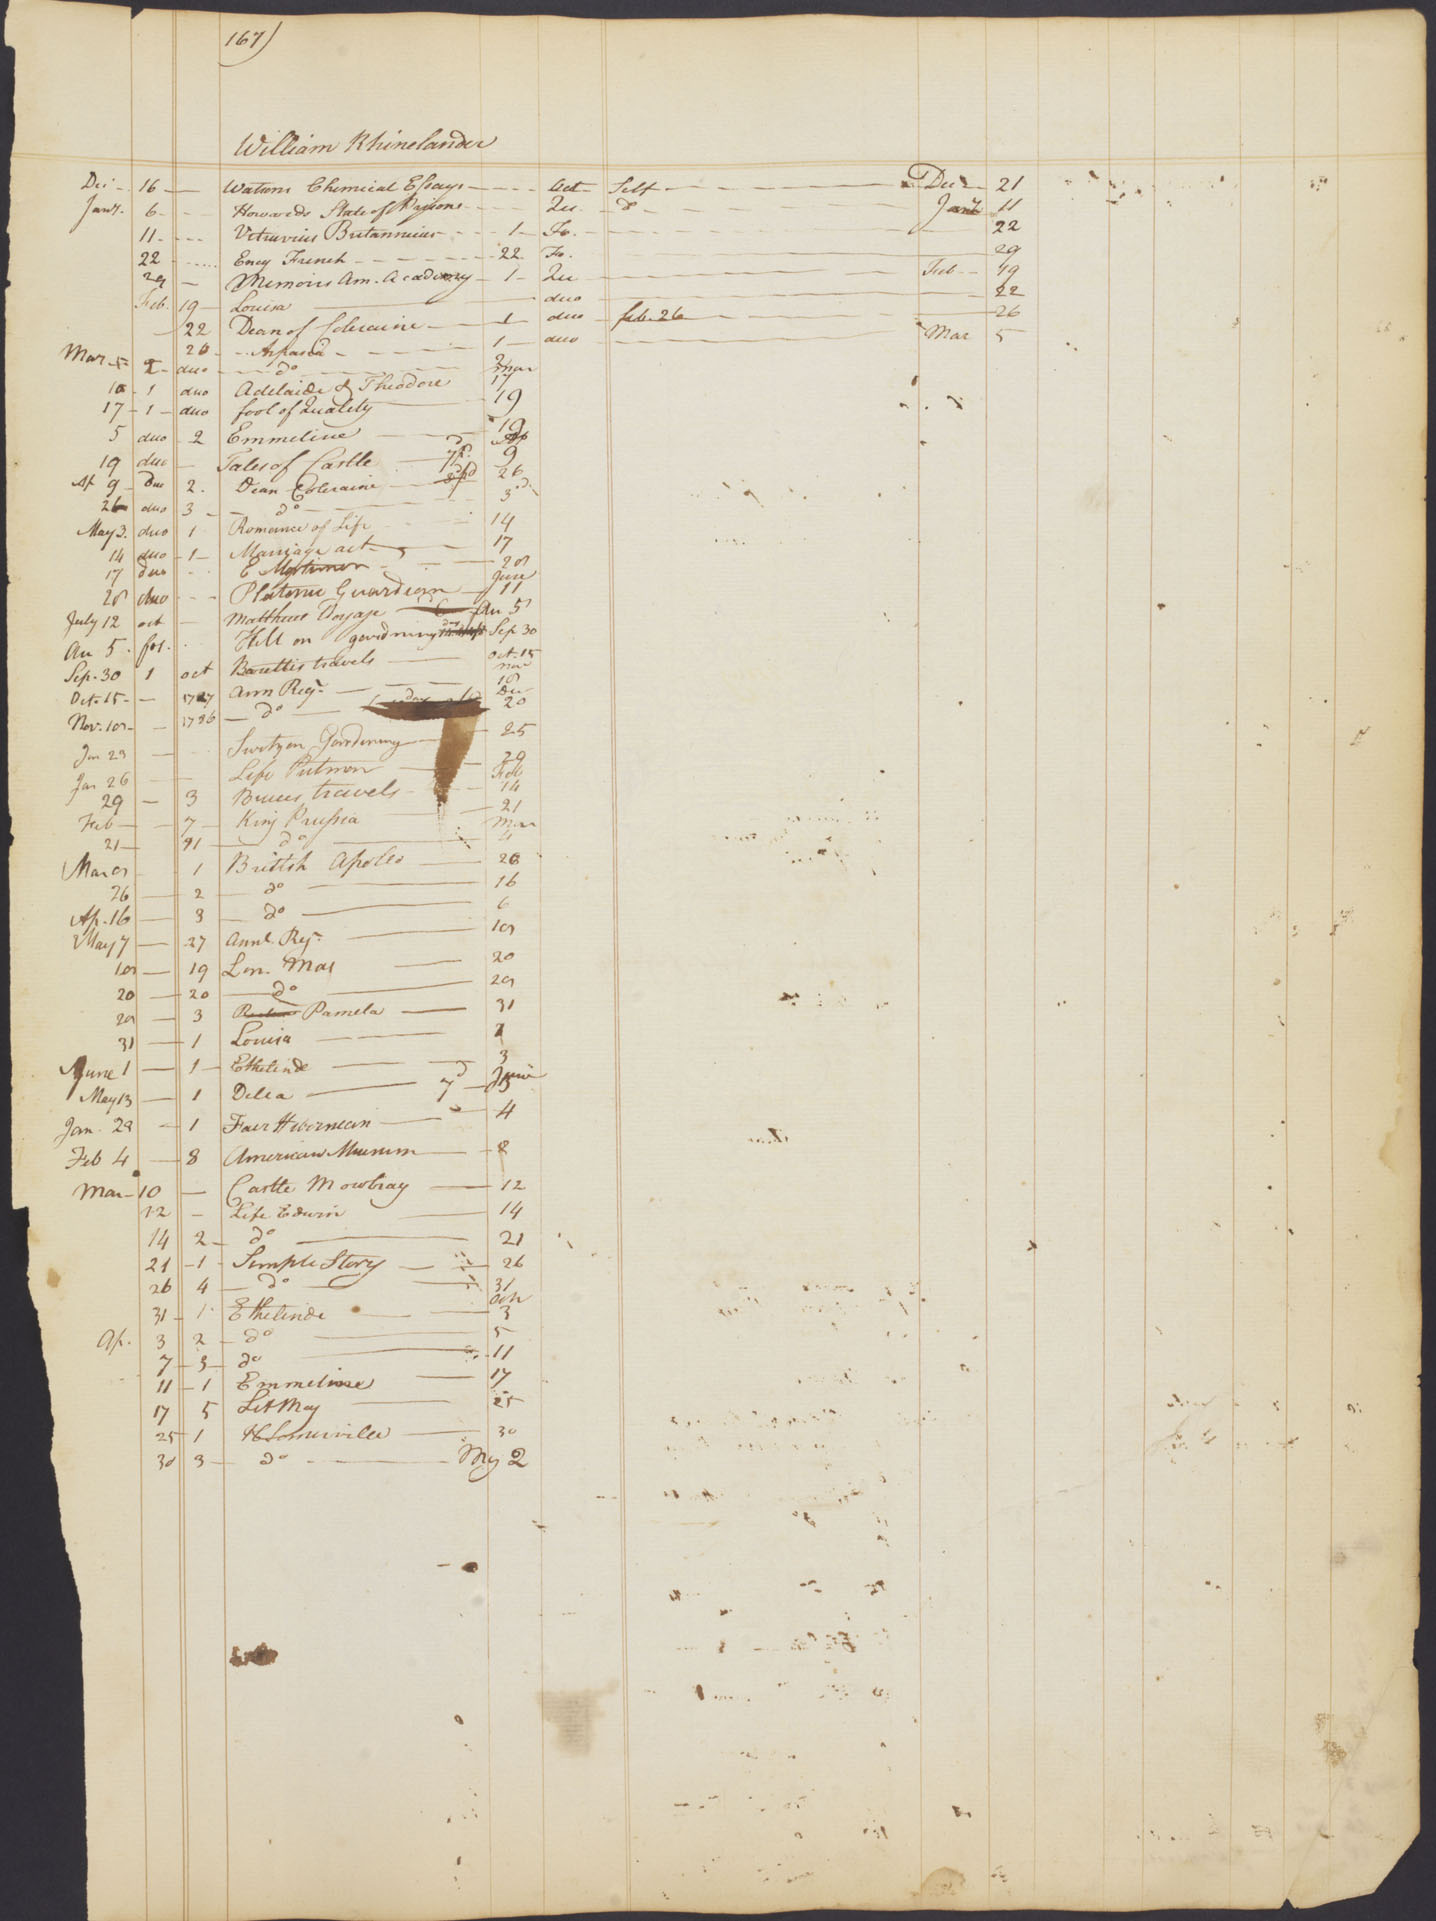 167)
William Rhinelander
Dec 16 Watsons Chemical Essays Oct Self Dec 21
Jany. 6 Howards State of Prisons Qu. do Jany 11
11 Vitruvius Britannicus 1 Fo. 22
22 Ency French 22 Fo. 29
29 Memoirs Am. Academy 1 Qu Feb 19
Feb. 19 Louisa duo 22
22 Dean of Coleraine 1 duo feb. 26 26
26 Aspasia 1 duo Mar 5
Mar 5 2 duo do Mar
10 1 duo Adelaide & Theodore 17
17 1 duo fool of Quality 19
5 duo 2 Emmeline 19
19 duo Tales of Castle Ap 9
Ap 9 Duo 2. Dean Coleraine 26
26 duo 3 do 3
May 3. duo 1 Romance of Life 14
14 duo 1 Marriage act 17
17 duo E Mortimer 28
28 duo Platonic Guardian June 11
July 12 oct Matthews Voyage Au 5
Au 5. fol. Hill on gardning Sep 30
Sep. 30 1 oct Barettis travels Oct. 15
Oct. 15 1787 Ann Regr. Nov 18
Nov. 18 1786 do Dec 20
Jan 23 Switzen Gardening 25
Jan 26 Life Putmon 29
29 3 Bruces travels Feb 14
Feb 7 King Prussia 21
21 11 do Mar 4
Mar 8 1 British Apollo 26
26 2 do 16
Ap. 16 3 do 6
May 7 27 Annl. Regr. 18
18 19 Lon. Mag 20
20 20 do 28
28 3 Pamela 31
31 1 Louisa 1
June 1 1 Ethelinde 3
May 13 1 Delia 7d June 3
Jan. 28 1 Fair Hibernian 4
Feb 4 8 American Museum 8
Mar 10 Castle Mowbray 12
12 Life Edwin 14
14 2 do 21
21 1 Simple Story 26
26 4 do 31
31 1 Ethelinde 3
Ap. 3 2 do 5
7 3 do 11
11 1 Emmeline 17
17 5 Lit Mag 25
25 1 H Somerville 30
30 3 do May 2